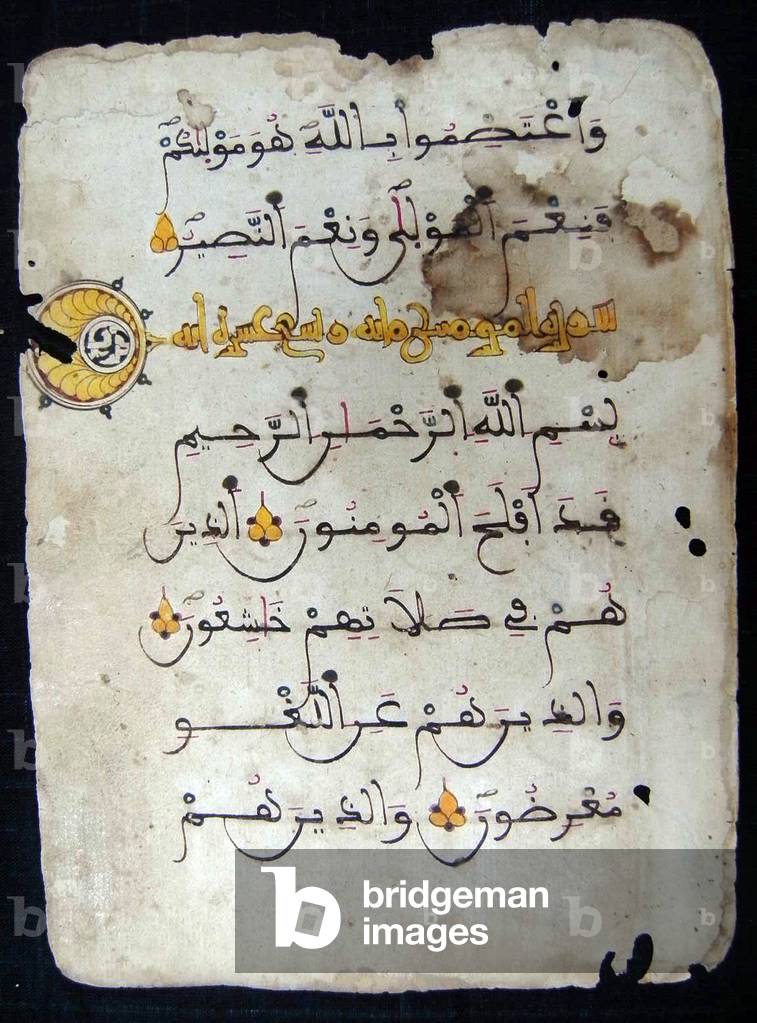 وَاعْتَصِمُواْ بِاللَّهِ هُوَ مَوْلَىٰكُمْ
فَنِعْمَ اَلْمَوْلَىٰ وَنِعْمَ اَلنَّصِيرُ
سورة المومنين مائة وتسع عشرة اية
بِسْمِ اِللَّهِ اِلرَّحْمَٰنِ اِلرَّحِيمِ
قَدَ اَفْلَحَ اَلْمُومِنُونَ اَلذِينَ
هُمْ فِي صَلَاتِهِمْ خَٰشِعُونَ
وَالذِينَ هُمْ عَنِ اِللَّغْوِ
مُعْرِضُونَ وَالذِينَ هُمْ
bridgeman
images